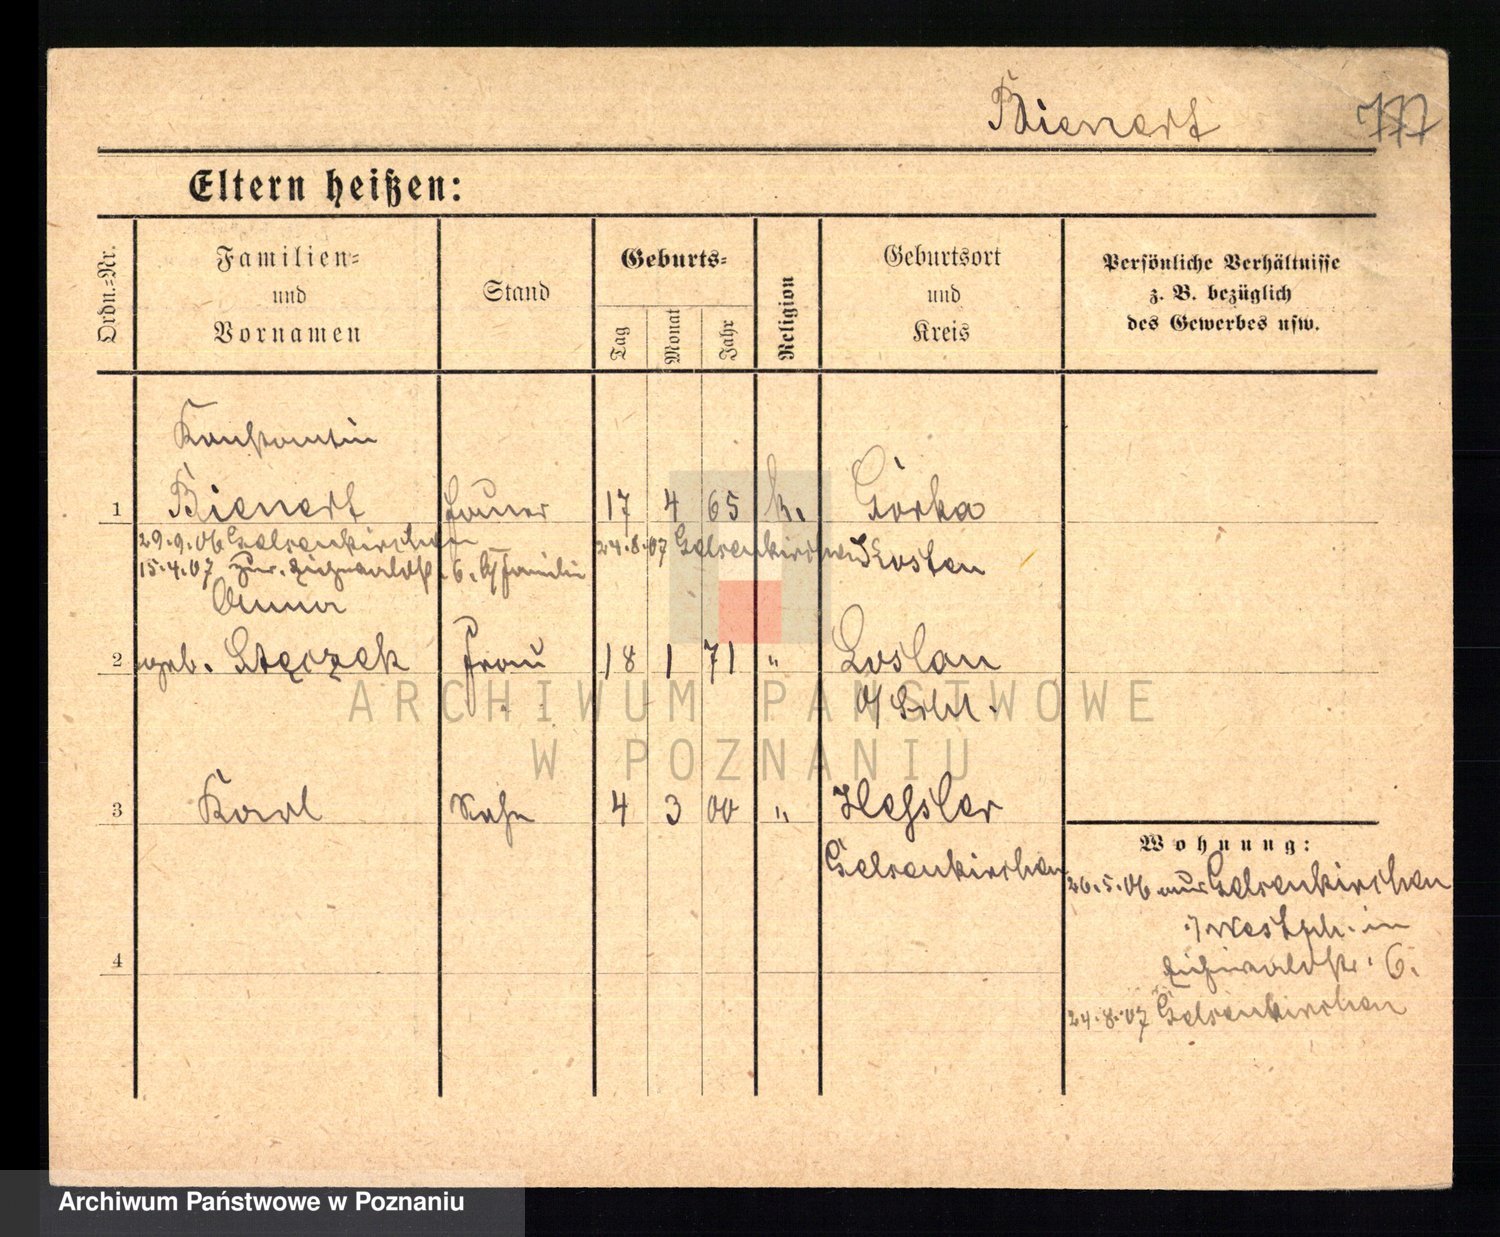 Bienert 777
Eltern heißen:
Ordn.-Nr.
Familien-
und
Vornamen
Stand
Geburts-
Tag
Monat
Jahr
Religion
Geburtsort
und
Kreis
Persönliche Verhältnisse
z. B. bezüglich
des Gewerbes usw.
Konstantin
1 Bienert Hauer 17 4 65 k. Górka
29.9.06 Gelsenkirchen 24.8.07 Gelsenkirchen Kosten
15.4.07 6. Familie
Anna
2 geb. Stęczek Frau 18 1 71 " Loslau
O/Schl.
3 Karl Sohn 4 3 00 " Hessler
Gelsenkirchen
4
Wohnung:
26.5.06 aus Gelsenkirchen
i/Westph. in
6.
24.8.07 Gelsenkirchen
ARCHIWUM PAŃSTWOWE
W POZNANIU
Archiwum Państwowe w Poznaniu